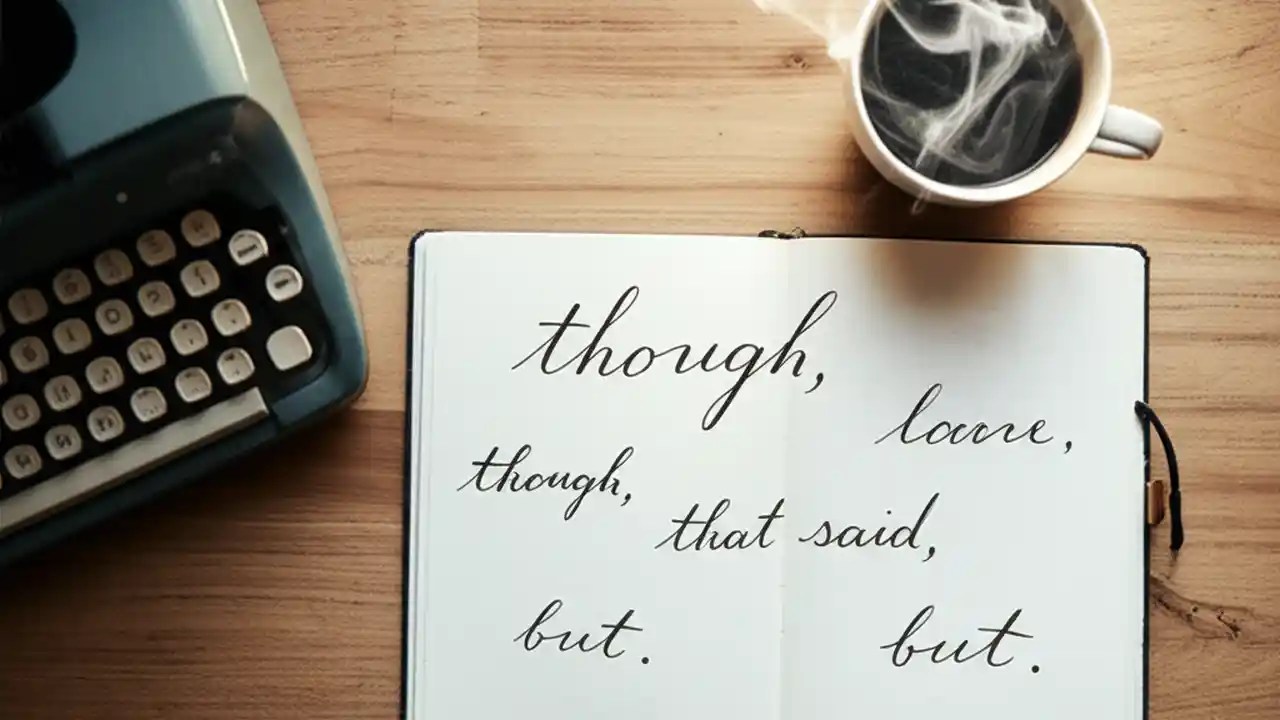 though,
though,
that said,
but.
but.